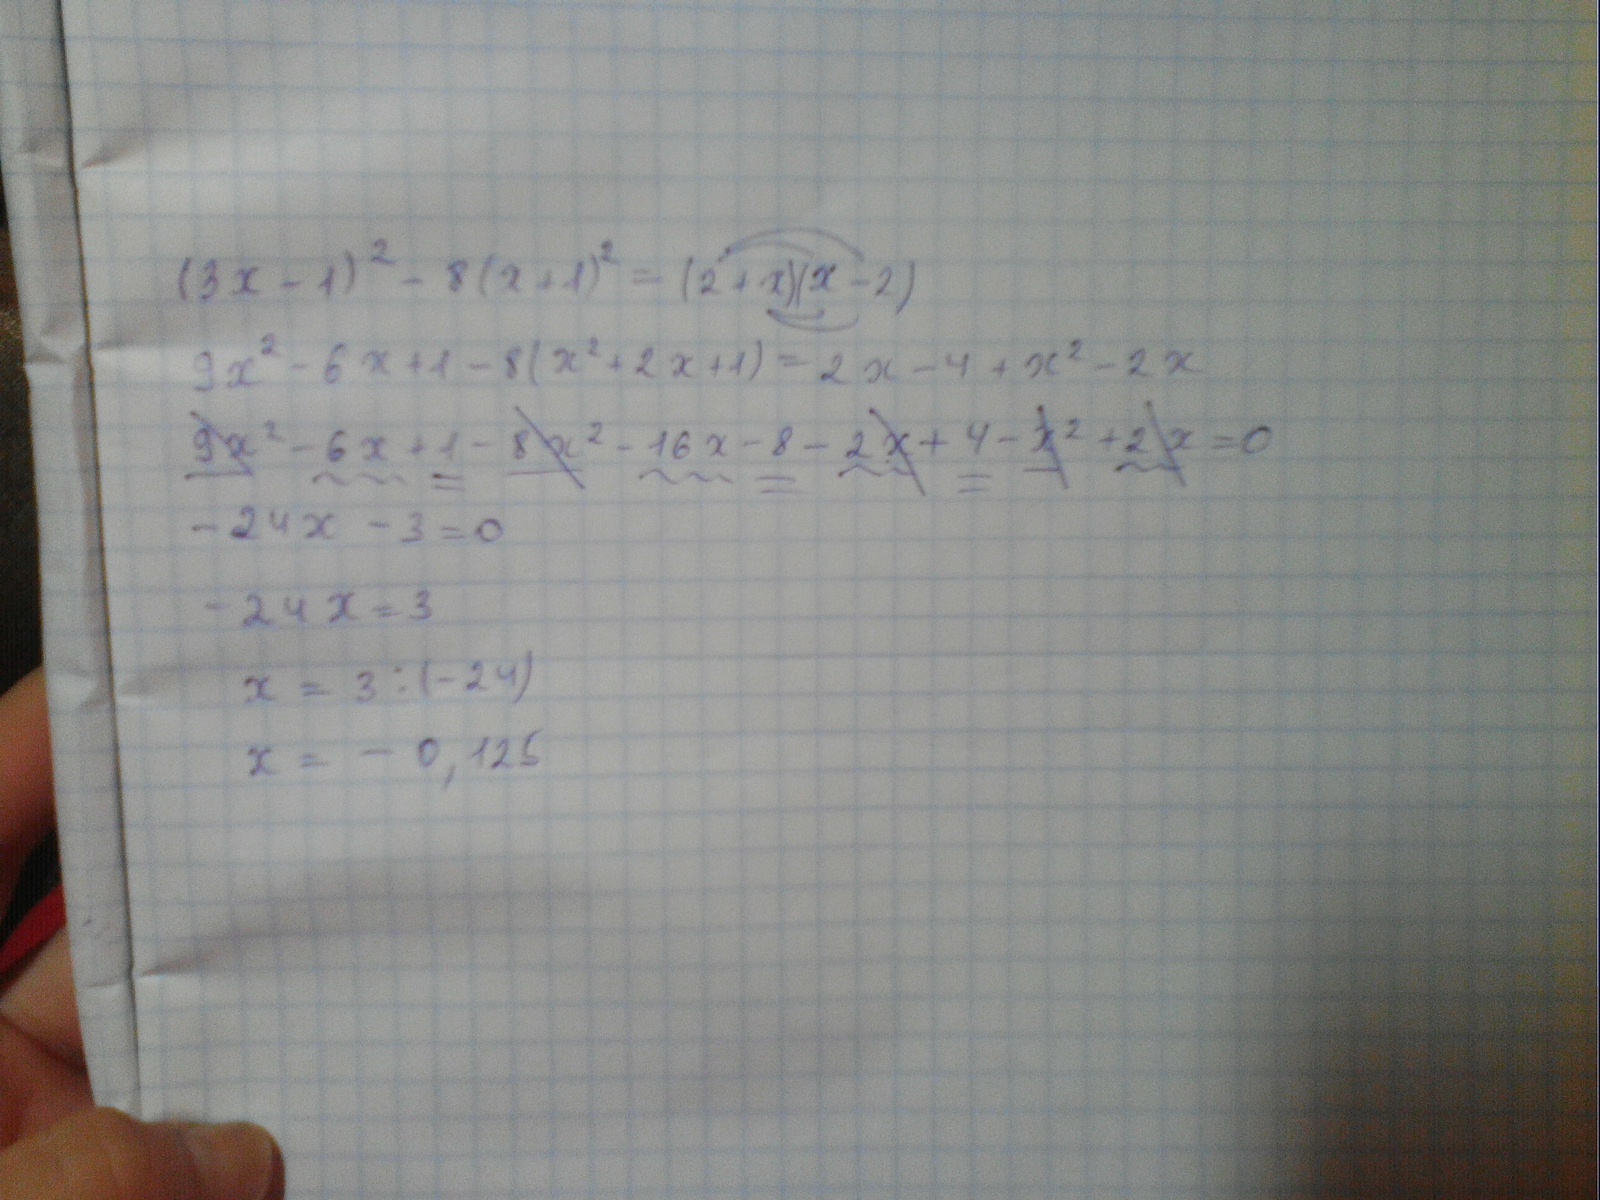 (3x - 1)² - 8(x+1)² = (2+x)(x-2)
9x² - 6x + 1 - 8(x² + 2x + 1) = 2x - 4 + x² - 2x
9x² - 6x + 1 - 8x² - 16x - 8 - 2x + 4 - x² + 2x = 0
-24x - 3 = 0
-24x = 3
x = 3 : (-24)
x = - 0,125